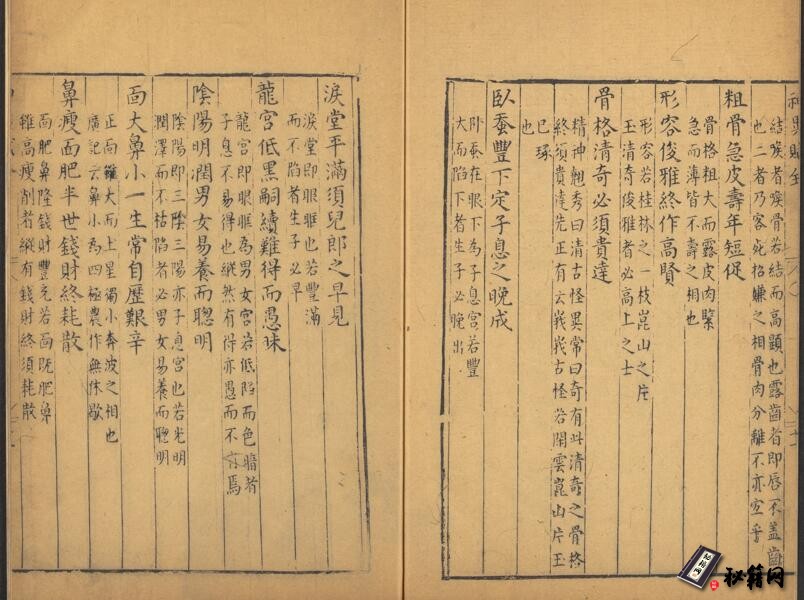 結喉者喉骨若結而高顯也露齒者即唇不蓋齒
也二者乃客死招嫌之相骨肉分離不亦宜乎
粗骨急皮壽年短促
骨格粗大而露皮肉緊
急而薄皆不壽之相也
形容俊雅終作高賢
形容若桂林之一枝崑山之片
玉清奇俊雅者必高上之士
骨格清奇必須貴達
精神翹秀曰清古怪異常曰奇有此清奇之骨格
終須貴達先正有云峩峩古怪若閑雲崑山片玉
已琢
也
臥蚕豐下定子息之晚成
卧蚕在眼下為子息宮若豐
大而陷下者生子必晚出
淚堂平滿須兒郎之早見
淚堂即眼眶也若豐滿
而不陷者生子必早
龍宮低黑嗣續難得而愚昧
龍宮即眼眶為男女宮若低陷而色暗者
子息不易得也縱然有得亦愚而不肖焉
陰陽明潤男女易養而聰明
陰陽即三陰三陽亦子息宮也若光明
潤澤而不枯陷者必男女易養而聰明
面大鼻小一生常自歷艱辛
正面雖大而上星獨小奔波之相也
廣記云鼻小為四極農作無休歇
鼻瘦面肥半世錢財終耗散
面肥鼻隆錢財豐充若面既肥鼻
雖高瘦削者縱有錢財終須耗散
秘籍网